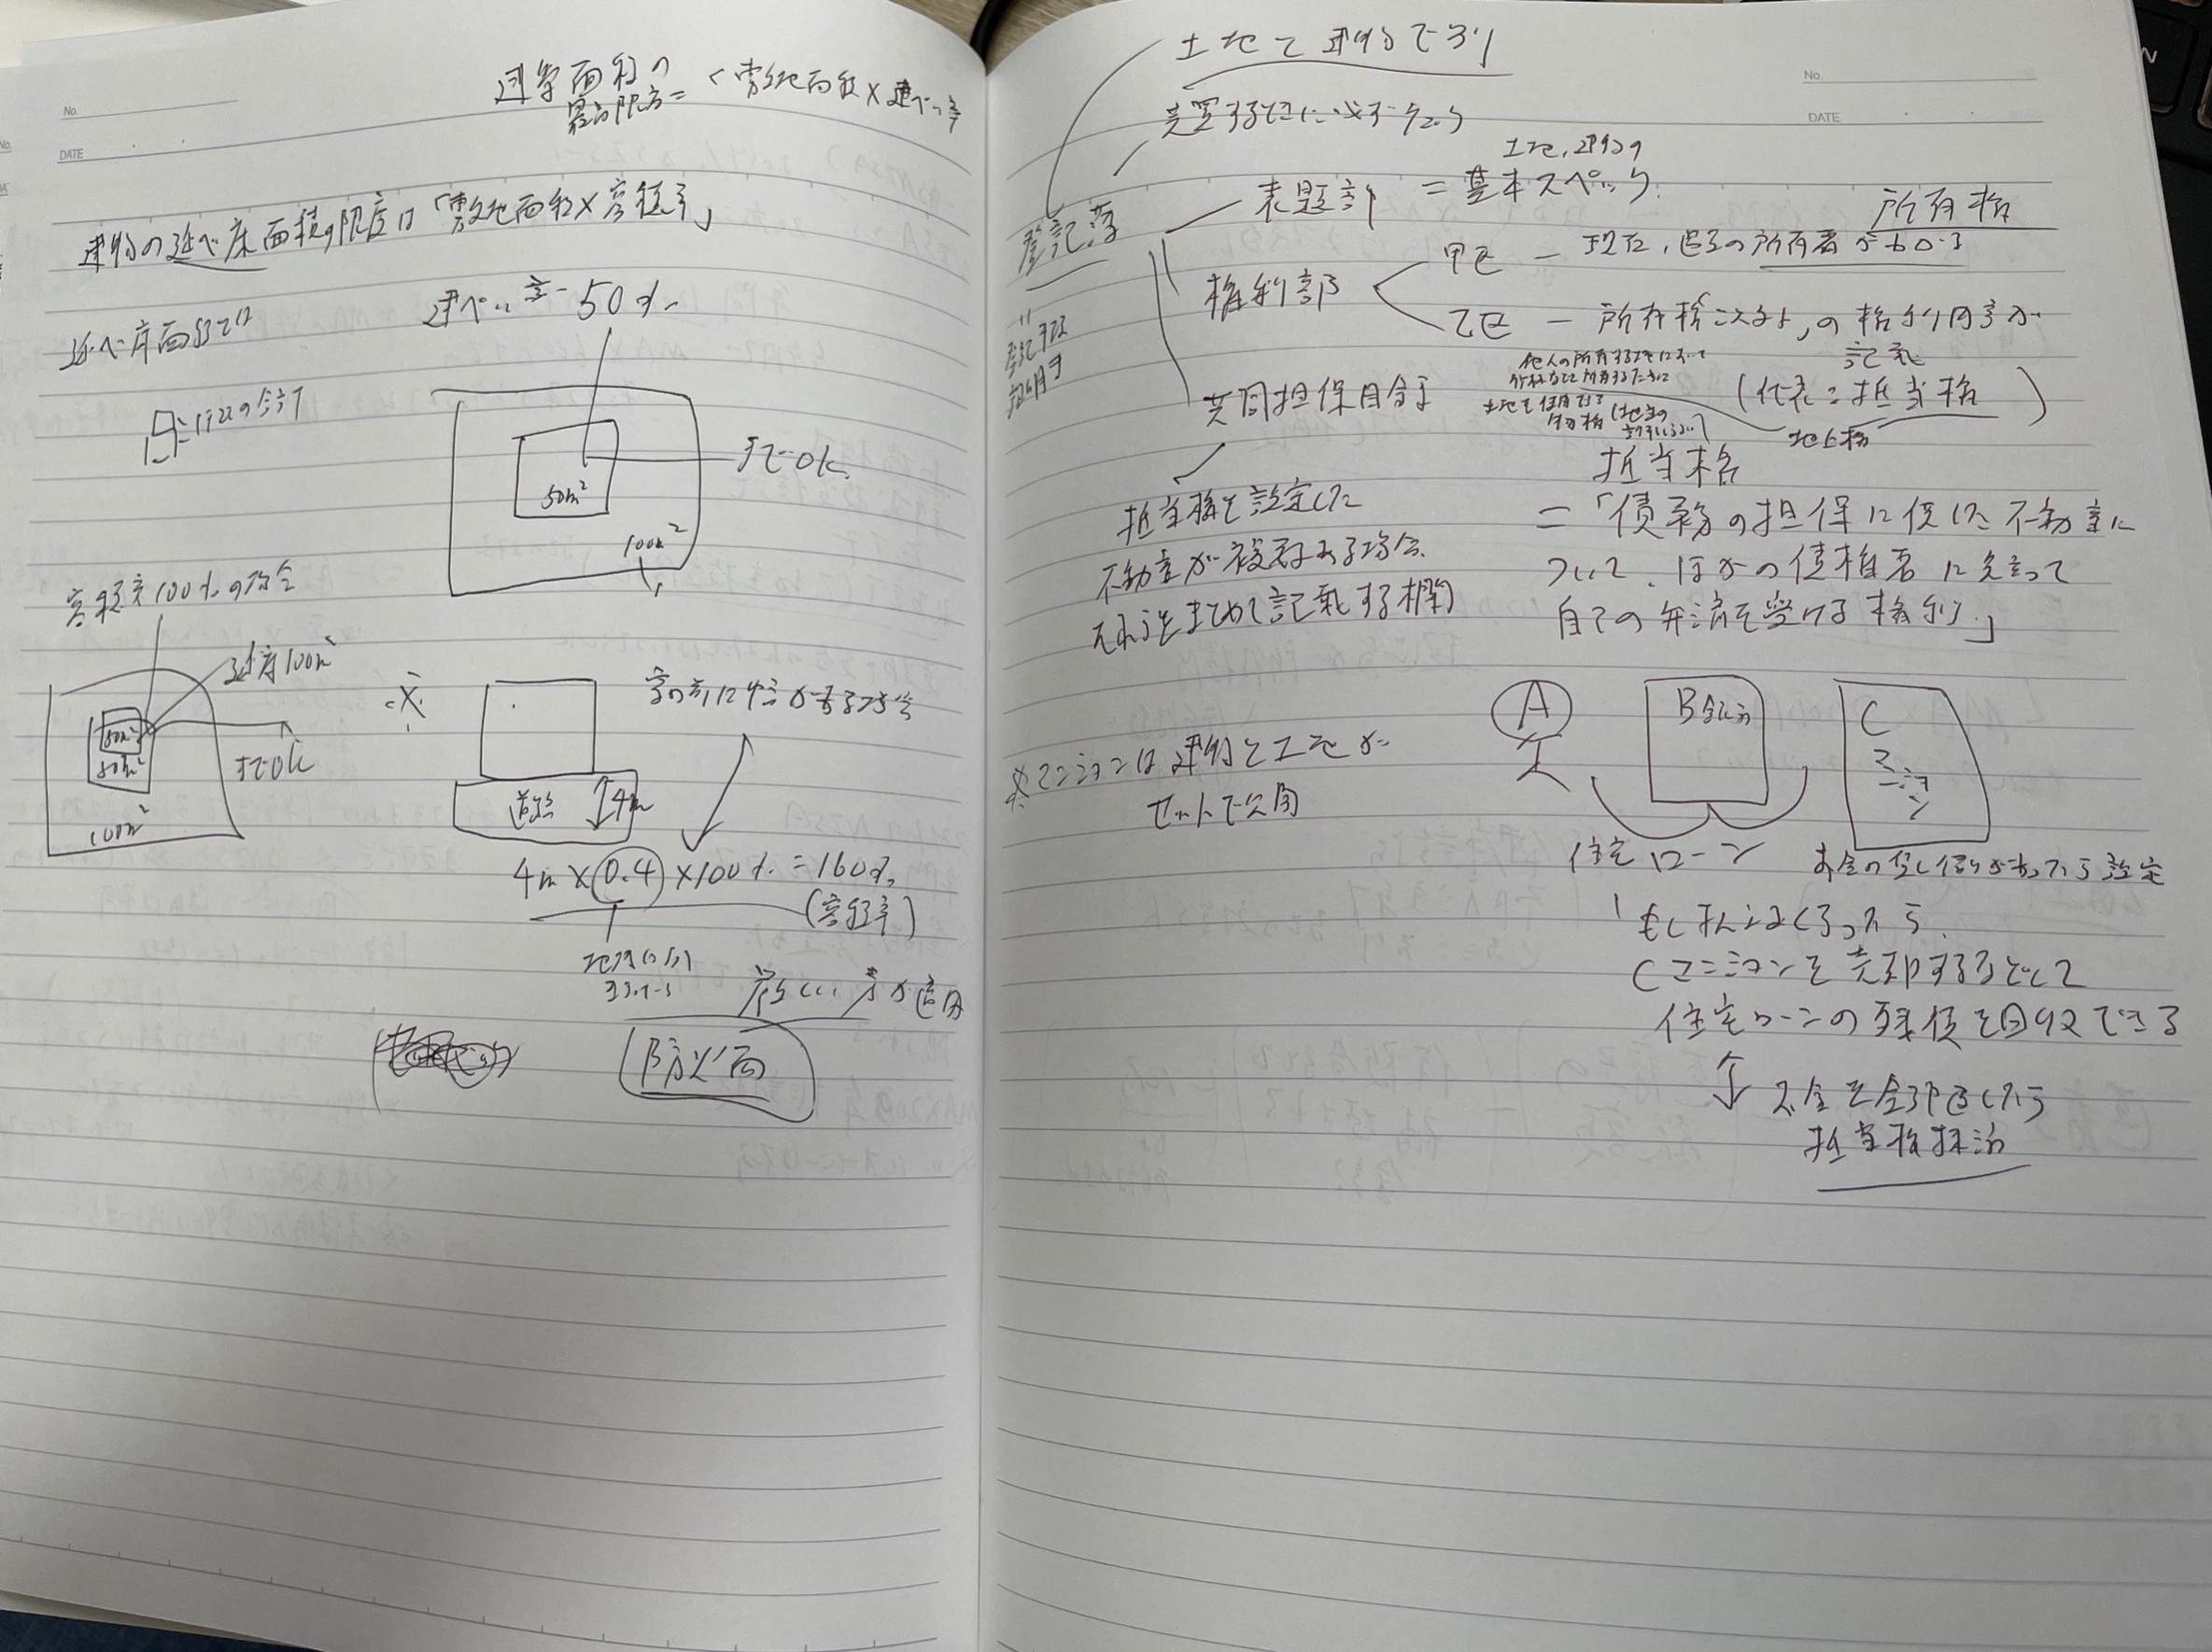 No.
DATE
建築面積の
最高限度=
敷地面積×建ぺい率
建物の延べ床面積の限度は「敷地面積×容積率」
延べ床面積とは
建ぺい率 50%
までOK
50m²
100m²
容積率100%の場合
延床100m²
50m²
50m²
100m²
までOK
家の前に
場合
道路
4m
4m×0.4×100%=160%
(容積率)
厳しい方が適用
防火
No.
DATE
土地と建物で別
売買するときに必ずチェック
登記簿
表題部 = 基本スペック
土地、建物の
所有権
権利部
甲区 ー 現在、過去の所有者がわかる
乙区 ー 所有権以外の権利関係が
記載
(代表:抵当権
地上権
他人の所有する土地において
土地を使用する
共同担保目録
抵当権を設定した
不動産が複数ある場合、
それらをまとめて記載する欄
抵当権
=「債務の担保に供した不動産に
ついて、ほかの債権者に先立って
自己の弁済を受ける権利」
※マンションは建物と土地が
セットで公開
A
B銀行
C
マンション
住宅ローン
お金の貸し借りがあったら設定
Cマンションを売却するなどして
住宅ローンの残債を回収できる
お金を全部返したら
抵当権抹消